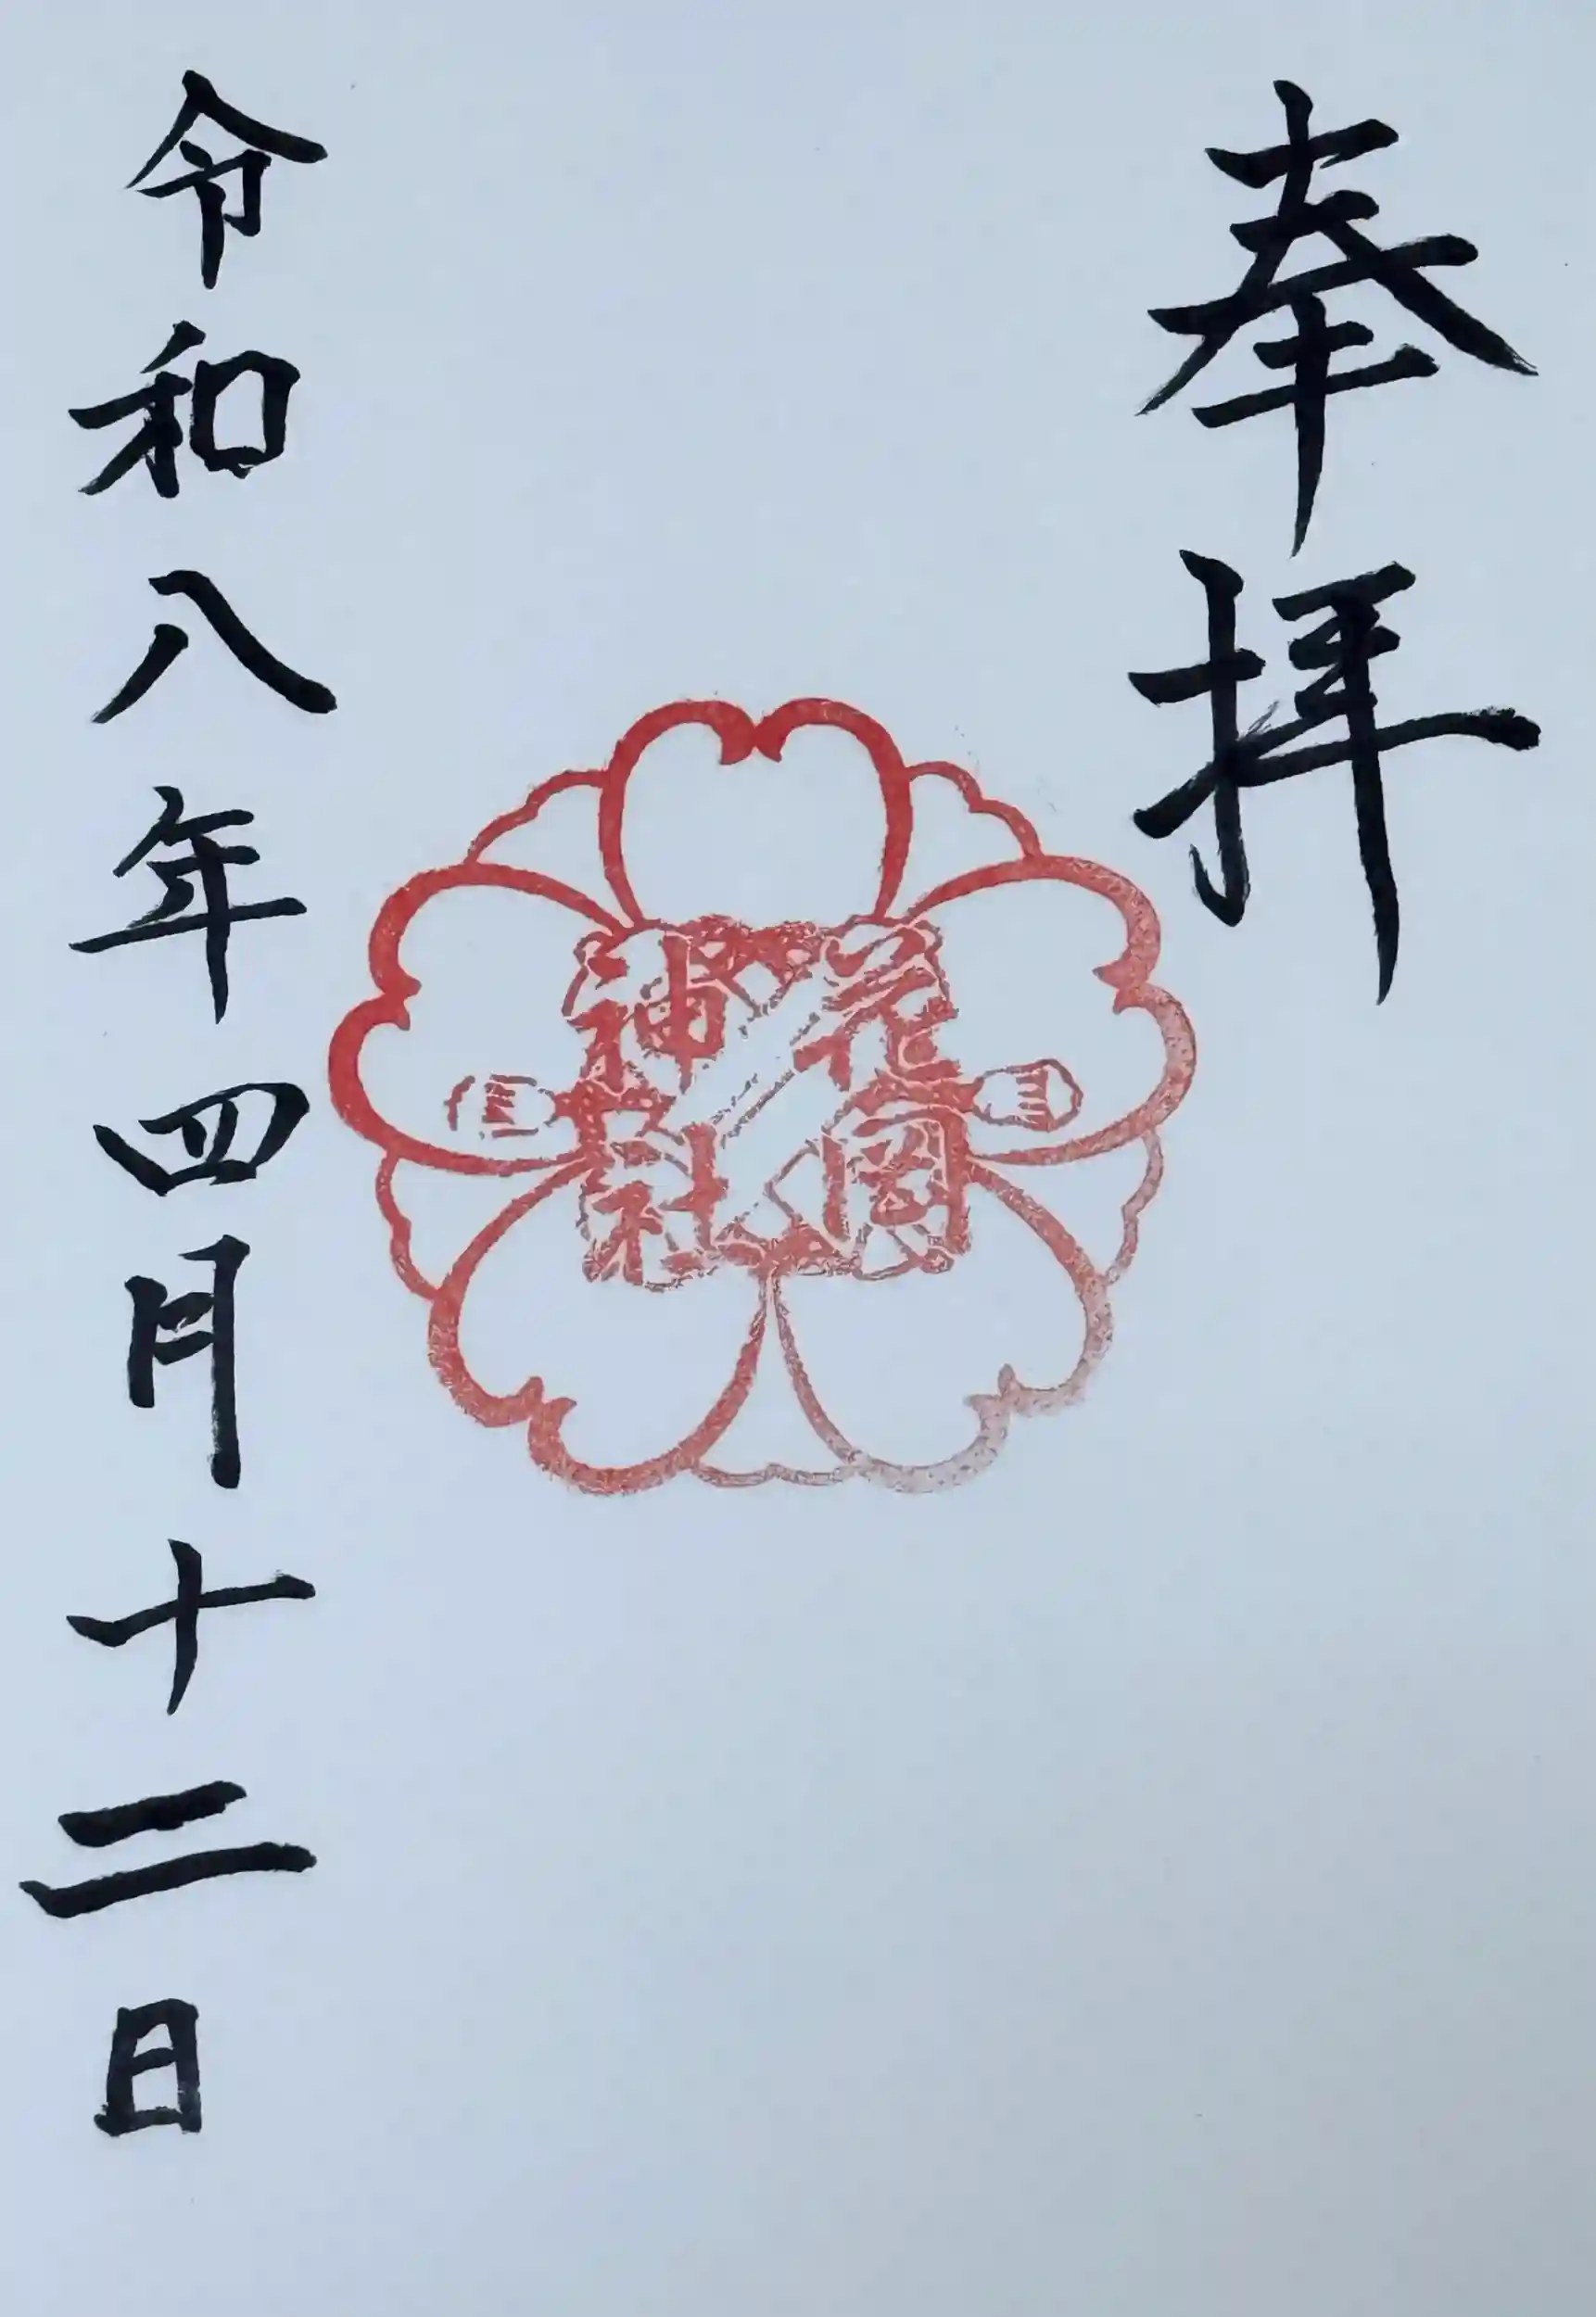 奉拝
花岡神社
令和八年四月十二日